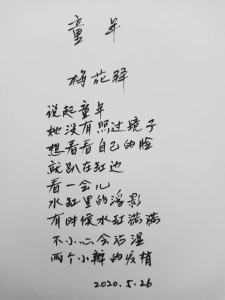 童年
梅花驿
说起童年
她没有照过镜子
想看看自己的脸
就趴在缸边
看一会儿
水缸里的浮影
有时候水缸满满
不小心会沾湿
两个小辫的发梢
2020.5.26